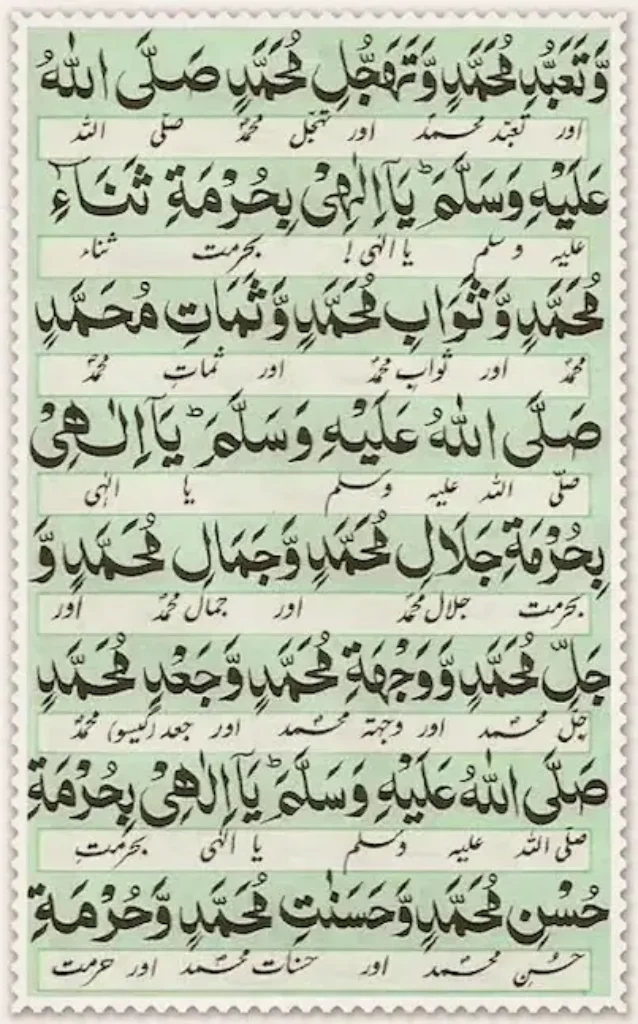 وَّتَعَبُّدِ مُحَمَّدٍ وَّتَهَجُّلِ مُحَمَّدٍ صَلَّى اللهُ
اور تعبّد محمدؐ اور تہجّل محمدؐ صلّی اللہ
عَلَيْهِ وَسَلَّمَ ؕ يَآ اِلٰهِیْ بِحُرْمَةِ ثَنَآءِ
علیہ وسلم یا الٰہی! بحرمت ثناء
مُحَمَّدٍ وَّثَوَابِ مُحَمَّدٍ وَّثَمَاتِ مُحَمَّدٍ
محمدؐ اور ثوابِ محمدؐ اور ثماتِ محمدؐ
صَلَّى اللهُ عَلَيْهِ وَسَلَّمَ ؕ يَآ اِلٰهِیْ
صلّی اللہ علیہ وسلم یا الٰہی
بِحُرْمَةِ جَلَالِ مُحَمَّدٍ وَّجَمَالِ مُحَمَّدٍ وَّ
بحرمت جلال محمدؐ اور جمال محمدؐ اور
جَلِّ مُحَمَّدٍ وَّوَجْهَةِ مُحَمَّدٍ وَّجَعْدِ مُحَمَّدٍ
جلّ محمدؐ اور وجہتہ محمدؐ اور جعد (گیسو) محمدؐ
صَلَّى اللهُ عَلَيْهِ وَسَلَّمَ ؕ يَآ اِلٰهِیْ بِحُرْمَةِ
صلی اللہ علیہ وسلم یا الٰہی بحرمتِ
حُسْنِ مُحَمَّدٍ وَّحَسَنٰتِ مُحَمَّدٍ وَّحُرْمَةِ
حسنِ محمدؐ اور حسنات محمدؐ اور حرمت